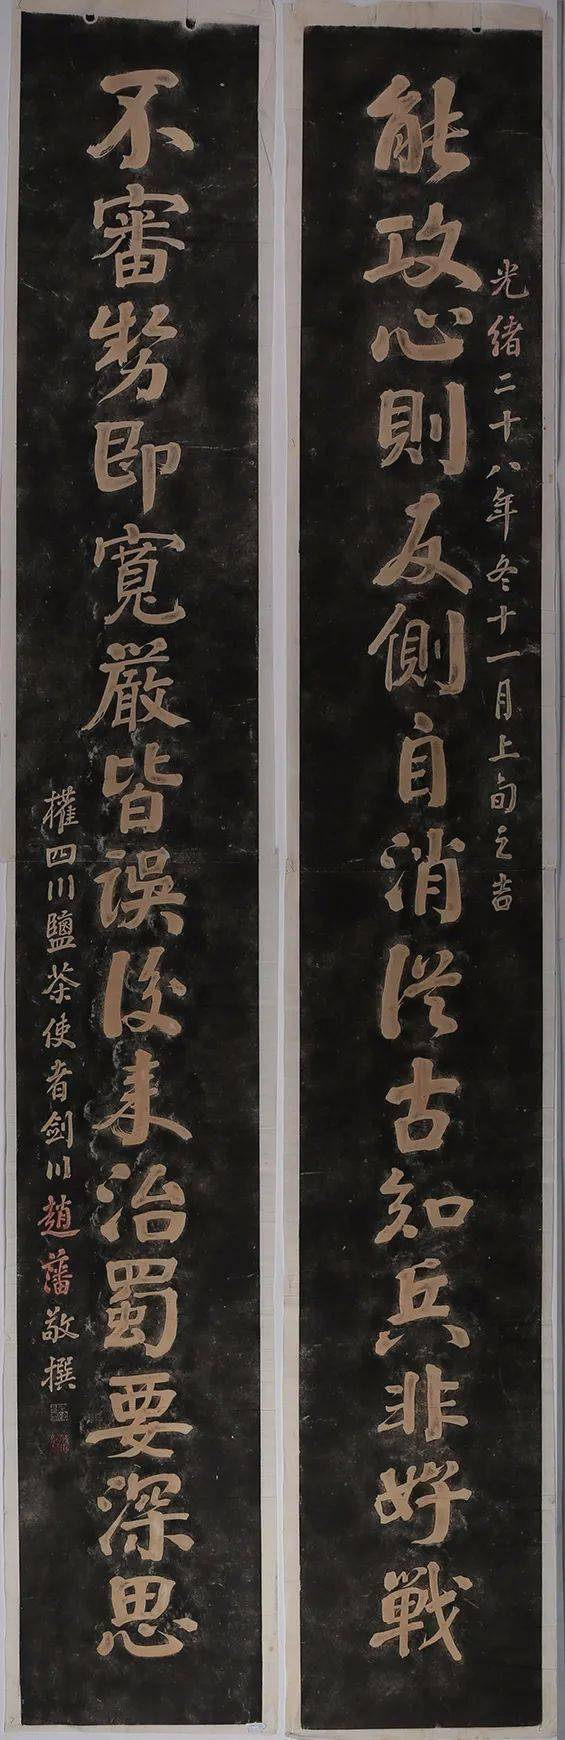 光緒二十八年冬十一月上旬之吉
能攻心則反側自消從古知兵非好戰
不審勢即寬嚴皆誤後来治蜀要深思
權四川鹽茶使者劍川趙藩敬撰